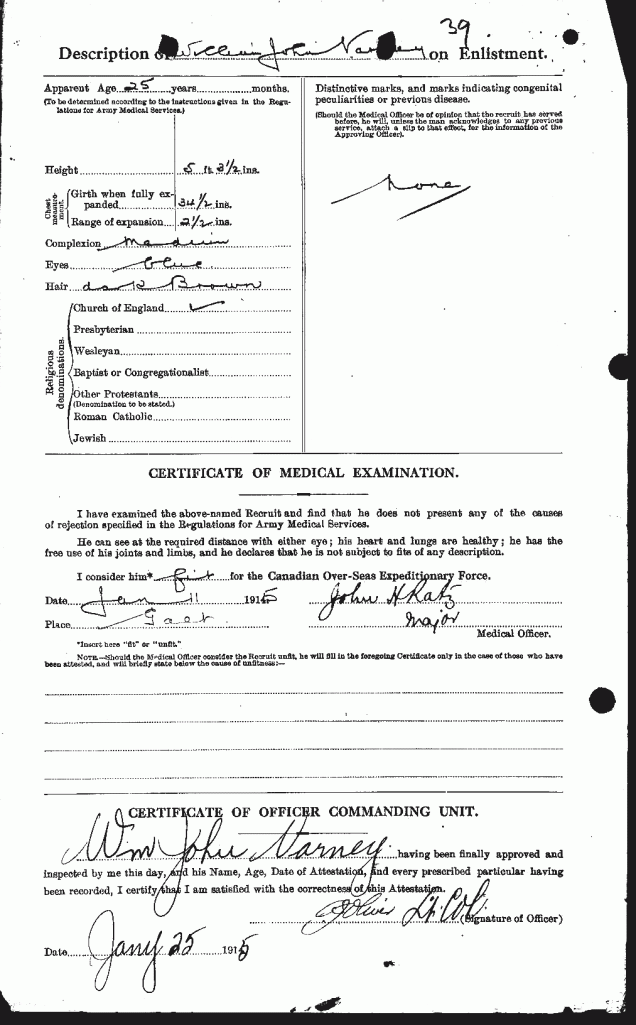 39
Description of William John Varney on Enlistment.
Apparent Age 25 years months.
(To be determined according to the instructions given in the Regu-
lations for Army Medical Services.)
Height 5 ft. 3½ ins.
Chest measure-ment.
Girth when fully ex-
panded 34½ ins.
Range of expansion 2½ ins.
Complexion Medium
Eyes blue
Hair dark Brown
Religious denominations.
Church of England ✓
Presbyterian
Wesleyan
Baptist or Congregationalist
Other Protestants
(Denomination to be stated.)
Roman Catholic
Jewish
Distinctive marks, and marks indicating congenital
peculiarities or previous disease.
(Should the Medical Officer be of opinion that the recruit has served
before, he will, unless the man acknowledges to any previous
service, attach a slip to that effect, for the information of the
Approving Officer).
None
CERTIFICATE OF MEDICAL EXAMINATION.
I have examined the above-named Recruit and find that he does not present any of the causes
of rejection specified in the Regulations for Army Medical Services.
He can see at the required distance with either eye; his heart and lungs are healthy; he has the
free use of his joints and limbs, and he declares that he is not subject to fits of any description.
I consider him* fit for the Canadian Over-Seas Expeditionary Force.
Date Jan 11 1915 John H Ratz
Place Galt Major
Medical Officer.
*Insert here "fit" or "unfit."
NOTE.—Should the Medical Officer consider the Recruit unfit, he will fill in the foregoing Certificate only in the case of those who have
been attested, and will briefly state below the cause of unfitness:—
CERTIFICATE OF OFFICER COMMANDING UNIT.
Wm John Varney having been finally approved and
inspected by me this day, and his Name, Age, Date of Attestation, and every prescribed particular having
been recorded, I certify that I am satisfied with the correctness of this Attestation.
Lt. Col. (Signature of Officer)
Date Jany 25 1915